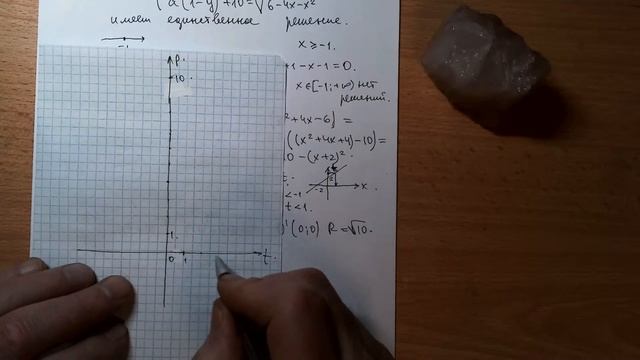 a(1-y)+10=√6-4x-x²
имеет единственное решение.
-1
x≥-1.
+1-x-1=0.
x∈[-1;+∞) нет
решений.
²+4x-6) =
((x²+4x+4)-10)=
10-(x+2)².
-2 x
<-1
t<1.
(0;0) R=√10.
p.
10
1
0 1 t.